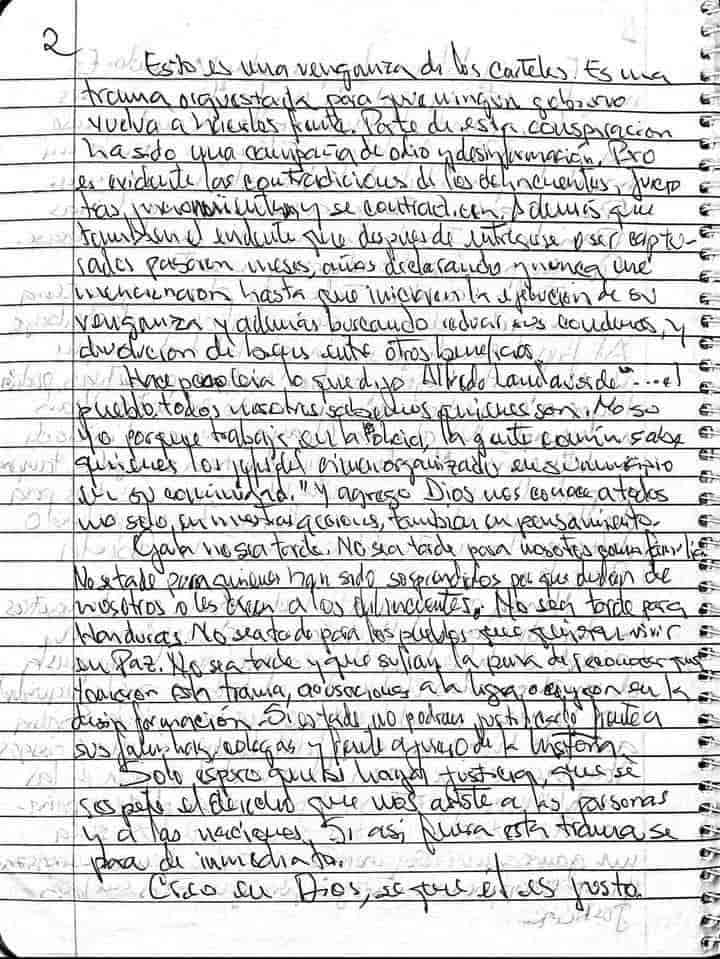 2
Esto es una venganza de los carteles. Es una
trama orquestada para que ningun gobierno
vuelva a hacerles frente. Parte de esta conspiracion
ha sido una campaña de odio y desinformación. Pero
es evidente las contradiciones de los delincuentes, juego
tras y se contradicen. Además que
tambien evidente que despues de entregarse o ser captu-
rados pasaron meses, años declarando y nunca me
mencionaron hasta que iniciaron la ejecución de su
venganza y además buscando reducir sus condenas, y
devolucion de bienes entre otros beneficios.
Hace poco leia lo que dijo Alfredo Landaverde "....el
pueblo, todos nosotros sabemos quienes son. No so
yo porque trabajé en la Policia, la gente común sabe
quienes los jefes del crimen organizado en su municipio
en su comunidad." Y agrego Dios nos conoce a todos
no solo en nuestras acciones, tambien en pensamiento.
Ojala no sea tarde. No sea tarde para nosotros como familia.
No sea tarde para quienes han sido sorprendidos por que dudan de
nosotros o les creen a los delincuentes. No sea tarde para
Honduras. No sea tarde para los pueblos que quieren vivir
en Paz. No sea tarde y que sufran la pena de reconocer que
esta trama, acusaciones a la ligera o cayeron en la
desinformación. Si es tarde no podran justificarlo frente a
sus familias, colegas y frente a juicio de la historia.
Solo espero que haya justicia, que se
respete el derecho que nos asiste a las personas
y a las naciones. Si asi fuera esta trama se
para de inmediato.
Creo en Dios, se que él es justo.